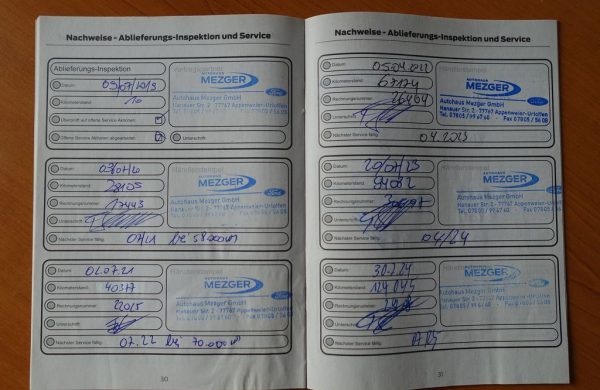 Nachweise - Ablieferungs-Inspektion und Service
Ablieferungs-Inspektion
Datum: 05/07/2019
Kilometerstand: 10
Überprüft auf offene Service Aktionen:
Offene Service Aktionen abgearbeitet:
Unterschrift:
AUTOHAUS
MEZGER
Ford
Autohaus Mezger GmbH
Hanauer Str. 2 - 77767 Appenweier-Urloffen
Tel. 07805 / 99 67 60 Fax 07805 / 56 08
Datum:
Kilometerstand: 28105
Rechnungsnummer: 17443
Unterschrift:
Nächster Service fällig: 07/21 bis 58000km
Händlerstempel
AUTOHAUS
MEZGER
Ford
Autohaus Mezger GmbH
Hanauer Str. 2 - 77767 Appenweier-Urloffen
Tel. 07805 / 99 67 60 Fax 07805 / 56 08
Datum: 02.07.21
Kilometerstand: 40317
Rechnungsnummer: 22015
Unterschrift:
Nächster Service fällig: 07.22 bis 70.000km
Händlerstempel
AUTOHAUS
MEZGER
Ford
Autohaus Mezger GmbH
Hanauer Str. 2 - 77767 Appenweier-Urloffen
Tel. 07805 / 99 67 60 Fax 07805 / 56 08
30
Nachweise - Ablieferungs-Inspektion und Service
Datum: 05.04.2022
Kilometerstand: 67174
Rechnungsnummer: 26464
Unterschrift:
Nächster Service fällig: 04.2023
AUTOHAUS
MEZGER
Ford
Autohaus Mezger GmbH
Hanauer Str. 2 - 77767 Appenweier-Urloffen
Tel. 07805 / 99 67 60 Fax 07805 / 56 08
Datum: 20/07/23
Kilometerstand:
Rechnungsnummer:
Unterschrift:
Nächster Service fällig: 04/24
Händlerstempel
AUTOHAUS
MEZGER
Ford
Autohaus Mezger GmbH
Hanauer Str. 2 - 77767 Appenweier-Urloffen
Tel. 07805 / 99 67 60 Fax 07805 / 56 08
Datum:
Kilometerstand:
Rechnungsnummer:
Unterschrift:
Nächster Service fällig:
AUTOHAUS
MEZGER
Ford
Autohaus Mezger GmbH
Hanauer Str. 2 - 77767 Appenweier-Urloffen
Tel. 07805 / 99 67 60 Fax 07805 / 56 08
31